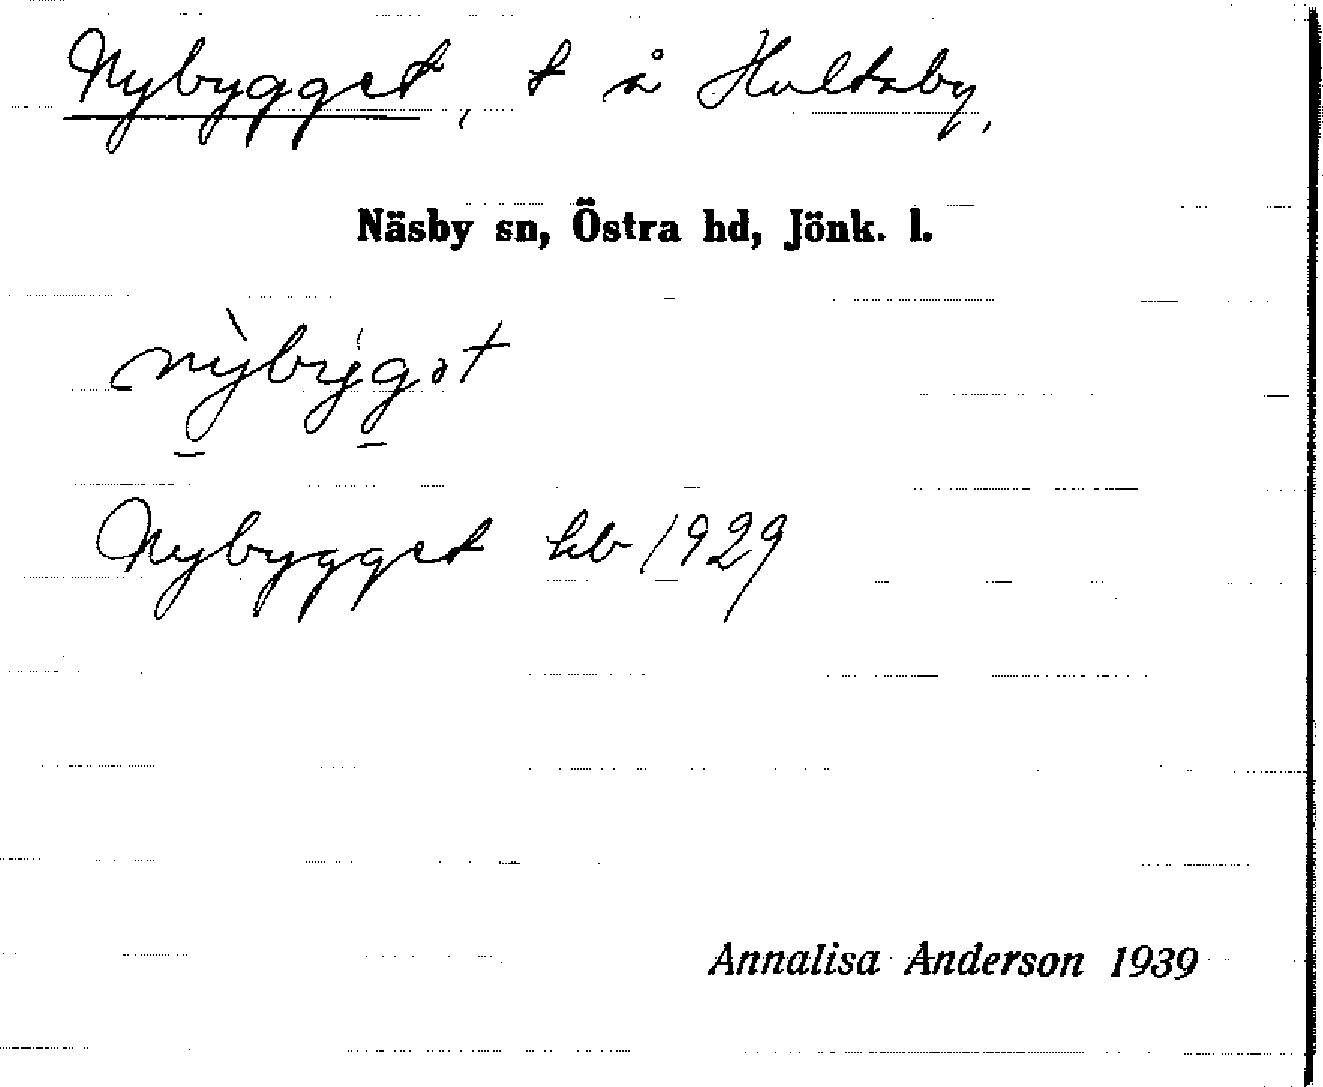 Nybygget, t å Hultsby,
Näsby sn, Östra hd, Jönk. l.
nỳbýgət
Nybygget kb 1929
Annalisa Anderson 1939